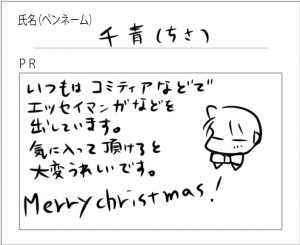 氏名(ペンネーム)
千青(ちさ)
PR
いつもは コミティアなどで
エッセイマンガなどを
出しています。
気に入って頂けると
大変うれしいです。
Merry christmas!